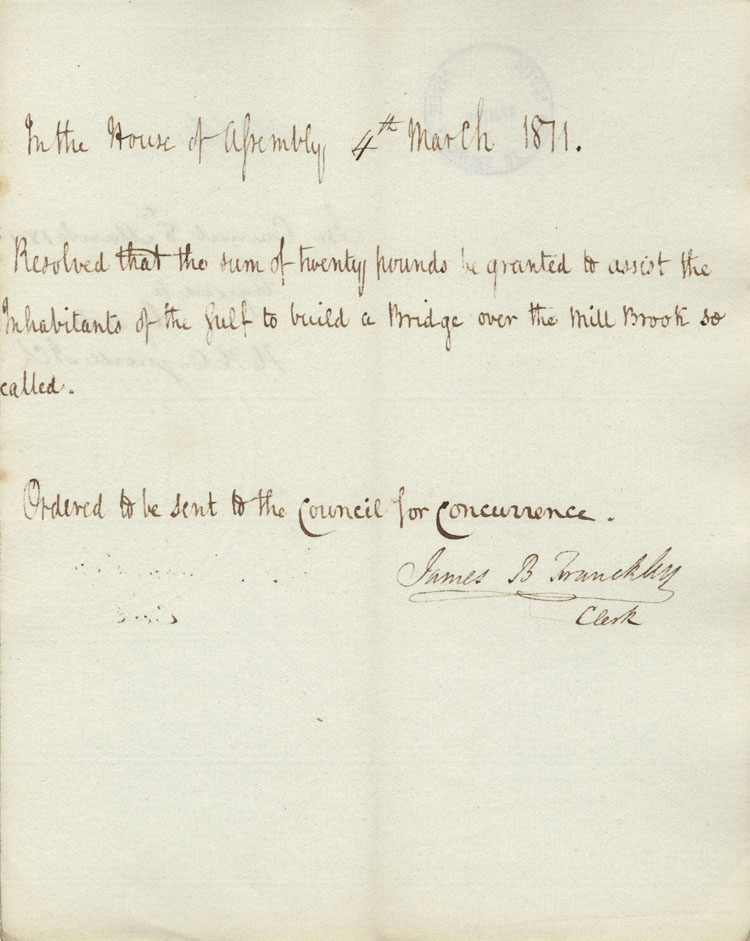 In the House of Assembly, 4th March 1811.
Resolved that the sum of twenty pounds be granted to assist the
Inhabitants of the Gulf to build a Bridge over the Mill Brook so
called.
Ordered to be sent to the Council for Concurrence.
James B Francklin
Clerk